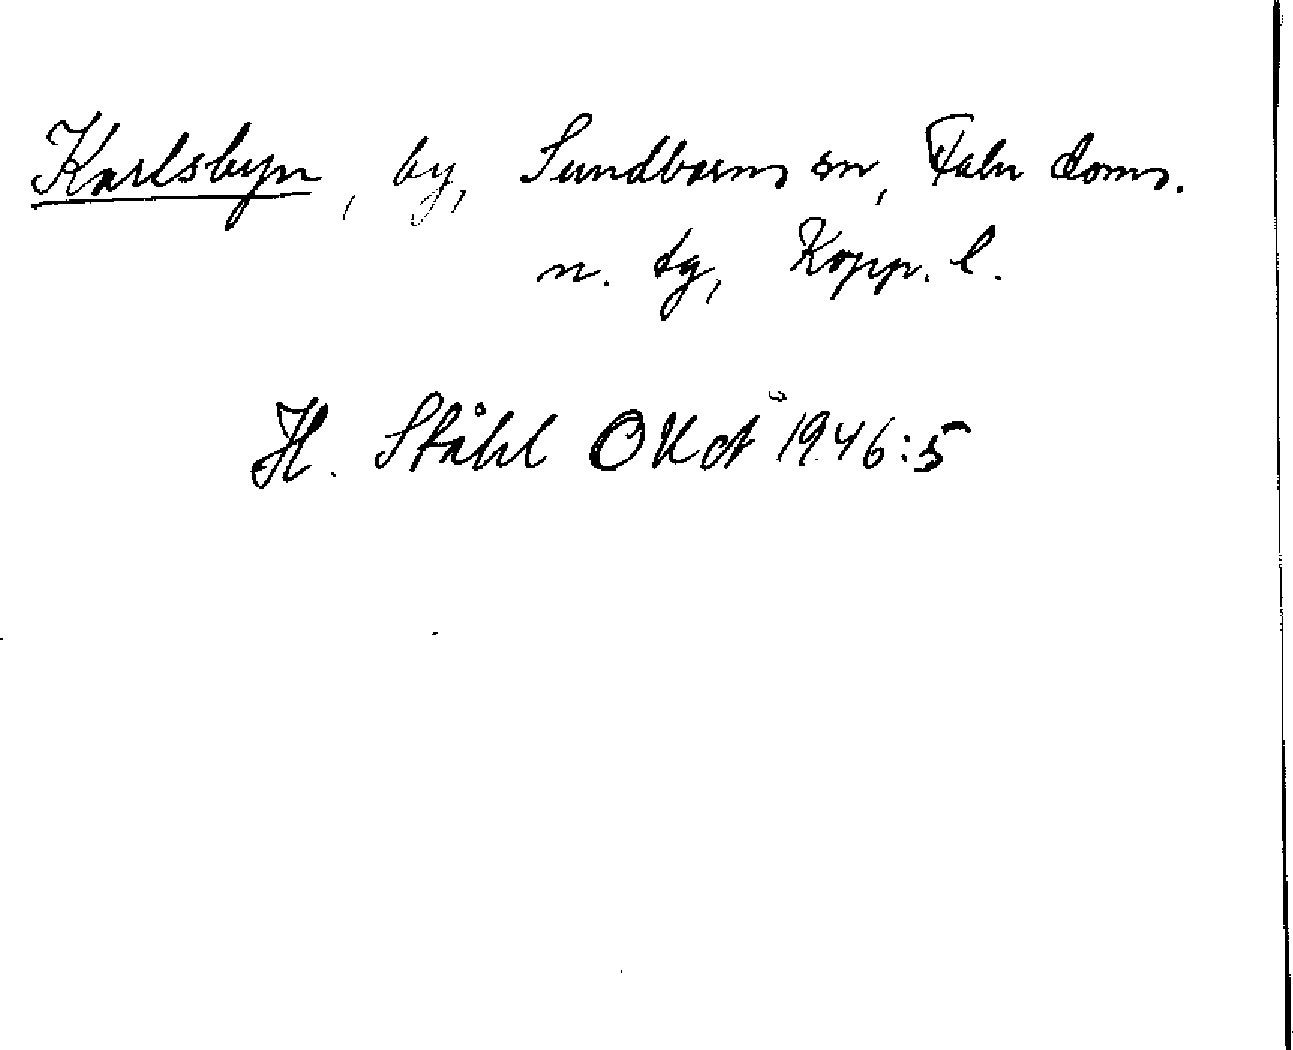 Karlsbyn, by, Sundborns sn, Falu doms.
n. tg, Kopp. l.
H. Ståhl OUÅ 1946:5